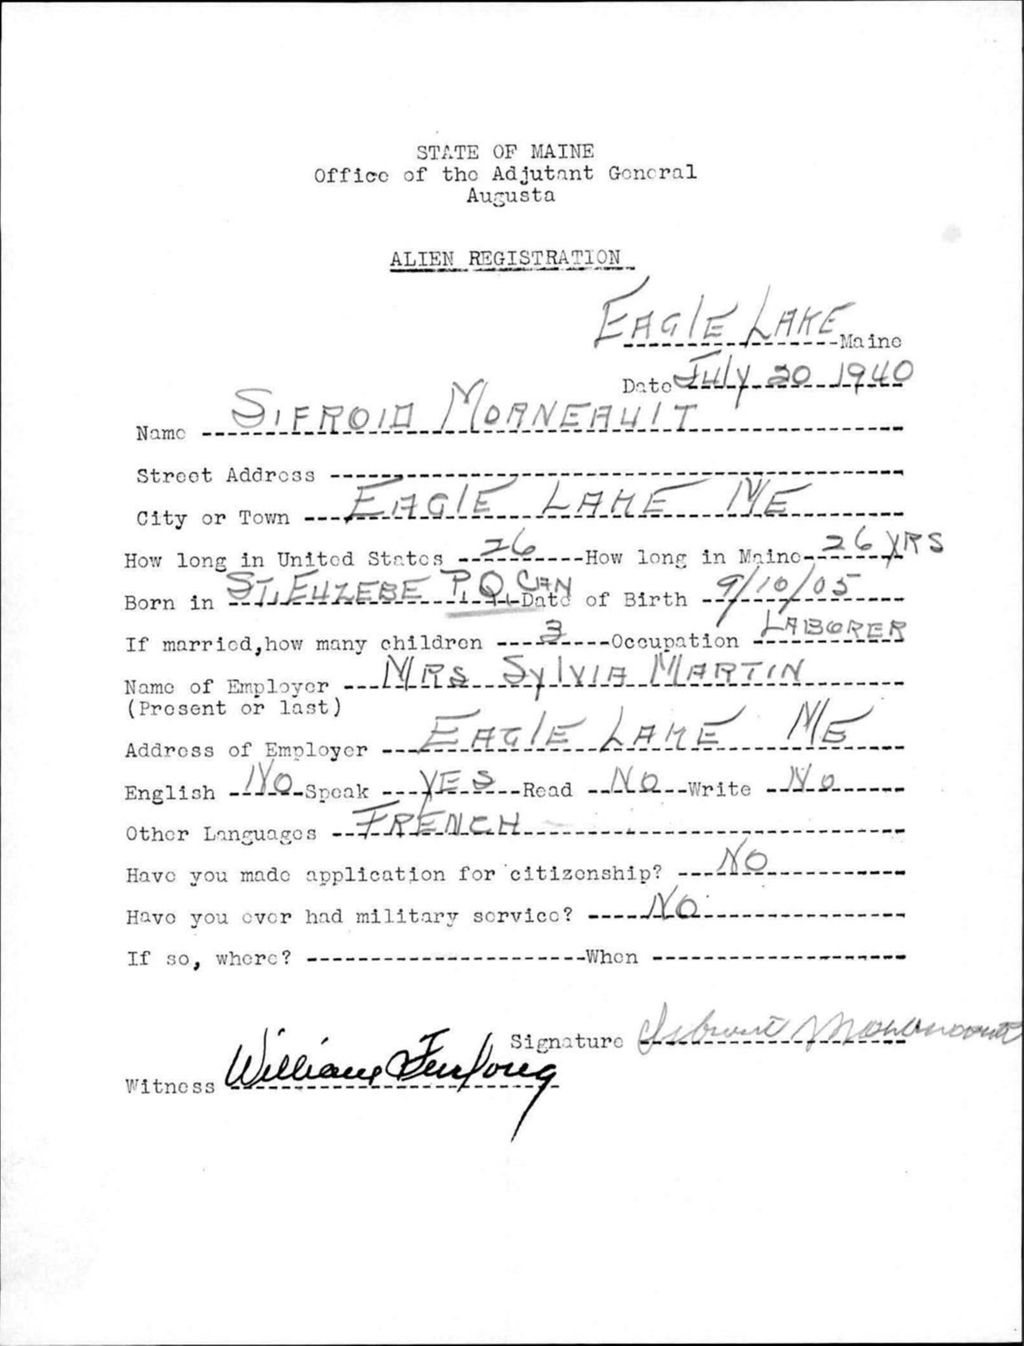 STATE OF MAINE
Office of the Adjutant General
Augusta
ALIEN REGISTRATION
EAGLE LAKE Maine
Date July 20 1940
Name SIFROID MORNEAULT
Street Address
City or Town EAGLE LAKE ME
How long in United States 26 How long in Maine 26 YRS
Born in ST. EUZEBE P.Q. CAN Date of Birth 9/10/05
If married, how many children 3 Occupation LABORER
Name of Employer MRS SYLVIA MARTIN
(Present or last)
Address of Employer EAGLE LAKE ME
English NO Speak YES Read NO Write NO
Other Languages FRENCH
Have you made application for citizenship? NO
Have you ever had military service? NO
If so, where? When
Signature
Witness William Furlong